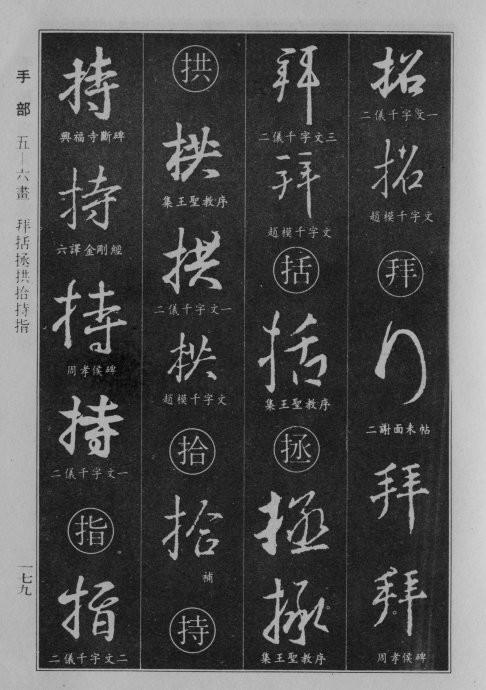 手部 五—六畫 拜括拯拱拾持指
一七九
招
二儀千字文一
招
趙模千字文
拜
拜
二謝面末帖
拜
拜
周孝侯碑
拜
二儀千字文三
拜
趙模千字文
括
括
集王聖教序
拯
拯
拯
集王聖教序
拱
拱
集王聖教序
拱
二儀千字文一
拱
趙模千字文
拾
拾
補
持
持
興福寺斷碑
持
六譯金剛經
持
周孝侯碑
持
二儀千字文一
指
指
二儀千字文二